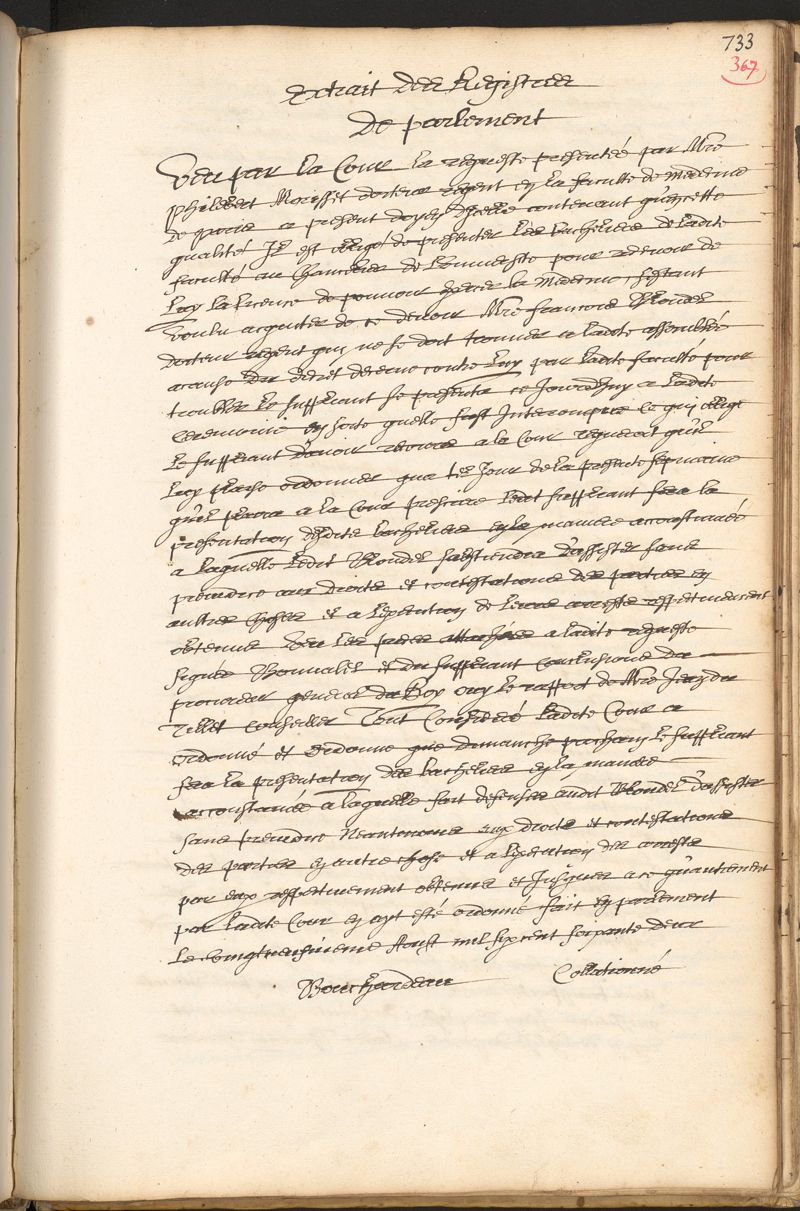 733
367
Extrait des Registres
De parlement
Veu par la Cour la requeste presentée par Mre
Philibert Morisset docteur regent en la faculte de medecine
de paris a present doyen d'icelle contenant qu'en cette
qualité Il est obligé de presenter les bacheliers de ladite
faculté au Chancelier de l'université pour recevoir de
luy la licence de pouvoir exercer la medecine, s'estant
voulu acquiter de ce devoir Mre francois Blondel
docteur regent qui ne se doit trouver a ladite assemblée
a cause du decret decerné contre luy par ladite faculté pour
troubler le suppliant se presenta ce Jourdhuy a ladite
ceremonie en sorte quelle fust Interrompue ce qui oblige
le suppliant d'avoir recours a la Cour requeroit qu'il
luy plaise ordonner que tel Jour de la presente sepmaine
qu'il plaira a la Cour prescrire ledit suppliant fera la
presentation desdits bacheliers en la maniere accoustumée
a laquelle ledit Blondel s'abstiendra d'assister sans
preiudice aux droits et contestations des parties en
autres choses et a l'execution de leurs arrests respectivement
obtenus Veu les pieces attachées a ladite requeste
signée Bonvalet et du suppliant Conclusions du
procureur general du Roy ouy le rapport de Mre Jean du
Tillet conseiller Tout Consideré ladite Cour a
ordonné et ordonne que dimanche prochain le suppliant
fera la presentation des bacheliers en la maniere
accoustumée a laquelle fait defenses audit Blondel d'assister
sans preiudice Neantmoins aux droits et contestations
des parties en autre chose et a l'execution des arrests
par eux respectivement obtenus et Jusques a ce qu'autrement
par ladite Cour en ayt esté ordonné fait en parlement
le vingtroisiesme Aoust mil six cent soixante deux
Collationné